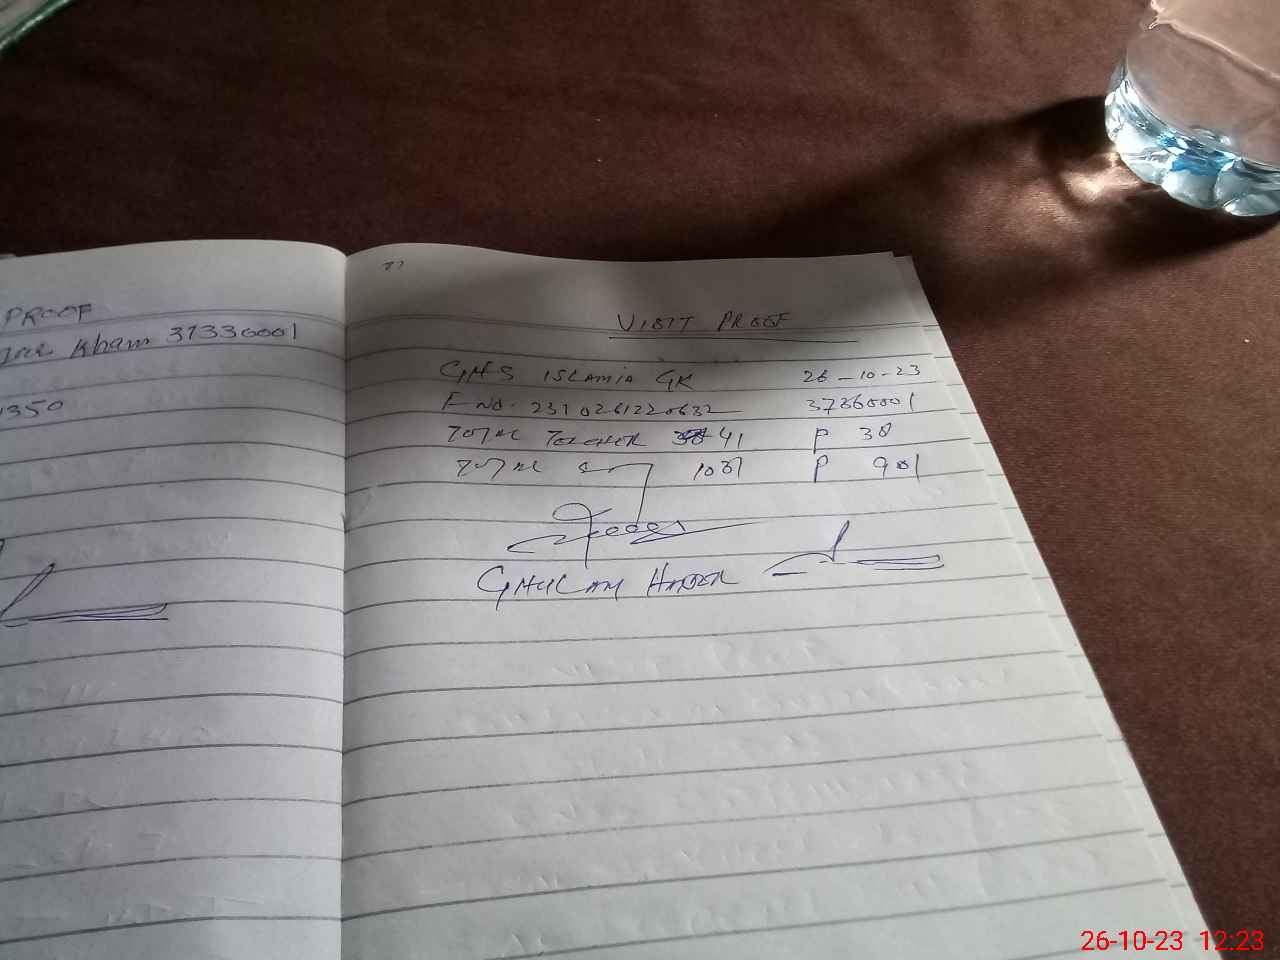 PROOF
Kham 37330001
1350
VISIT PROOF
GHS ISLAMIA GK 26-10-23
F No. 2310261220632 37360001
TOTAL TEACHER 41 P 38
TOTAL 1031 P 901
GHULAM HAIDER
26-10-23 12:23